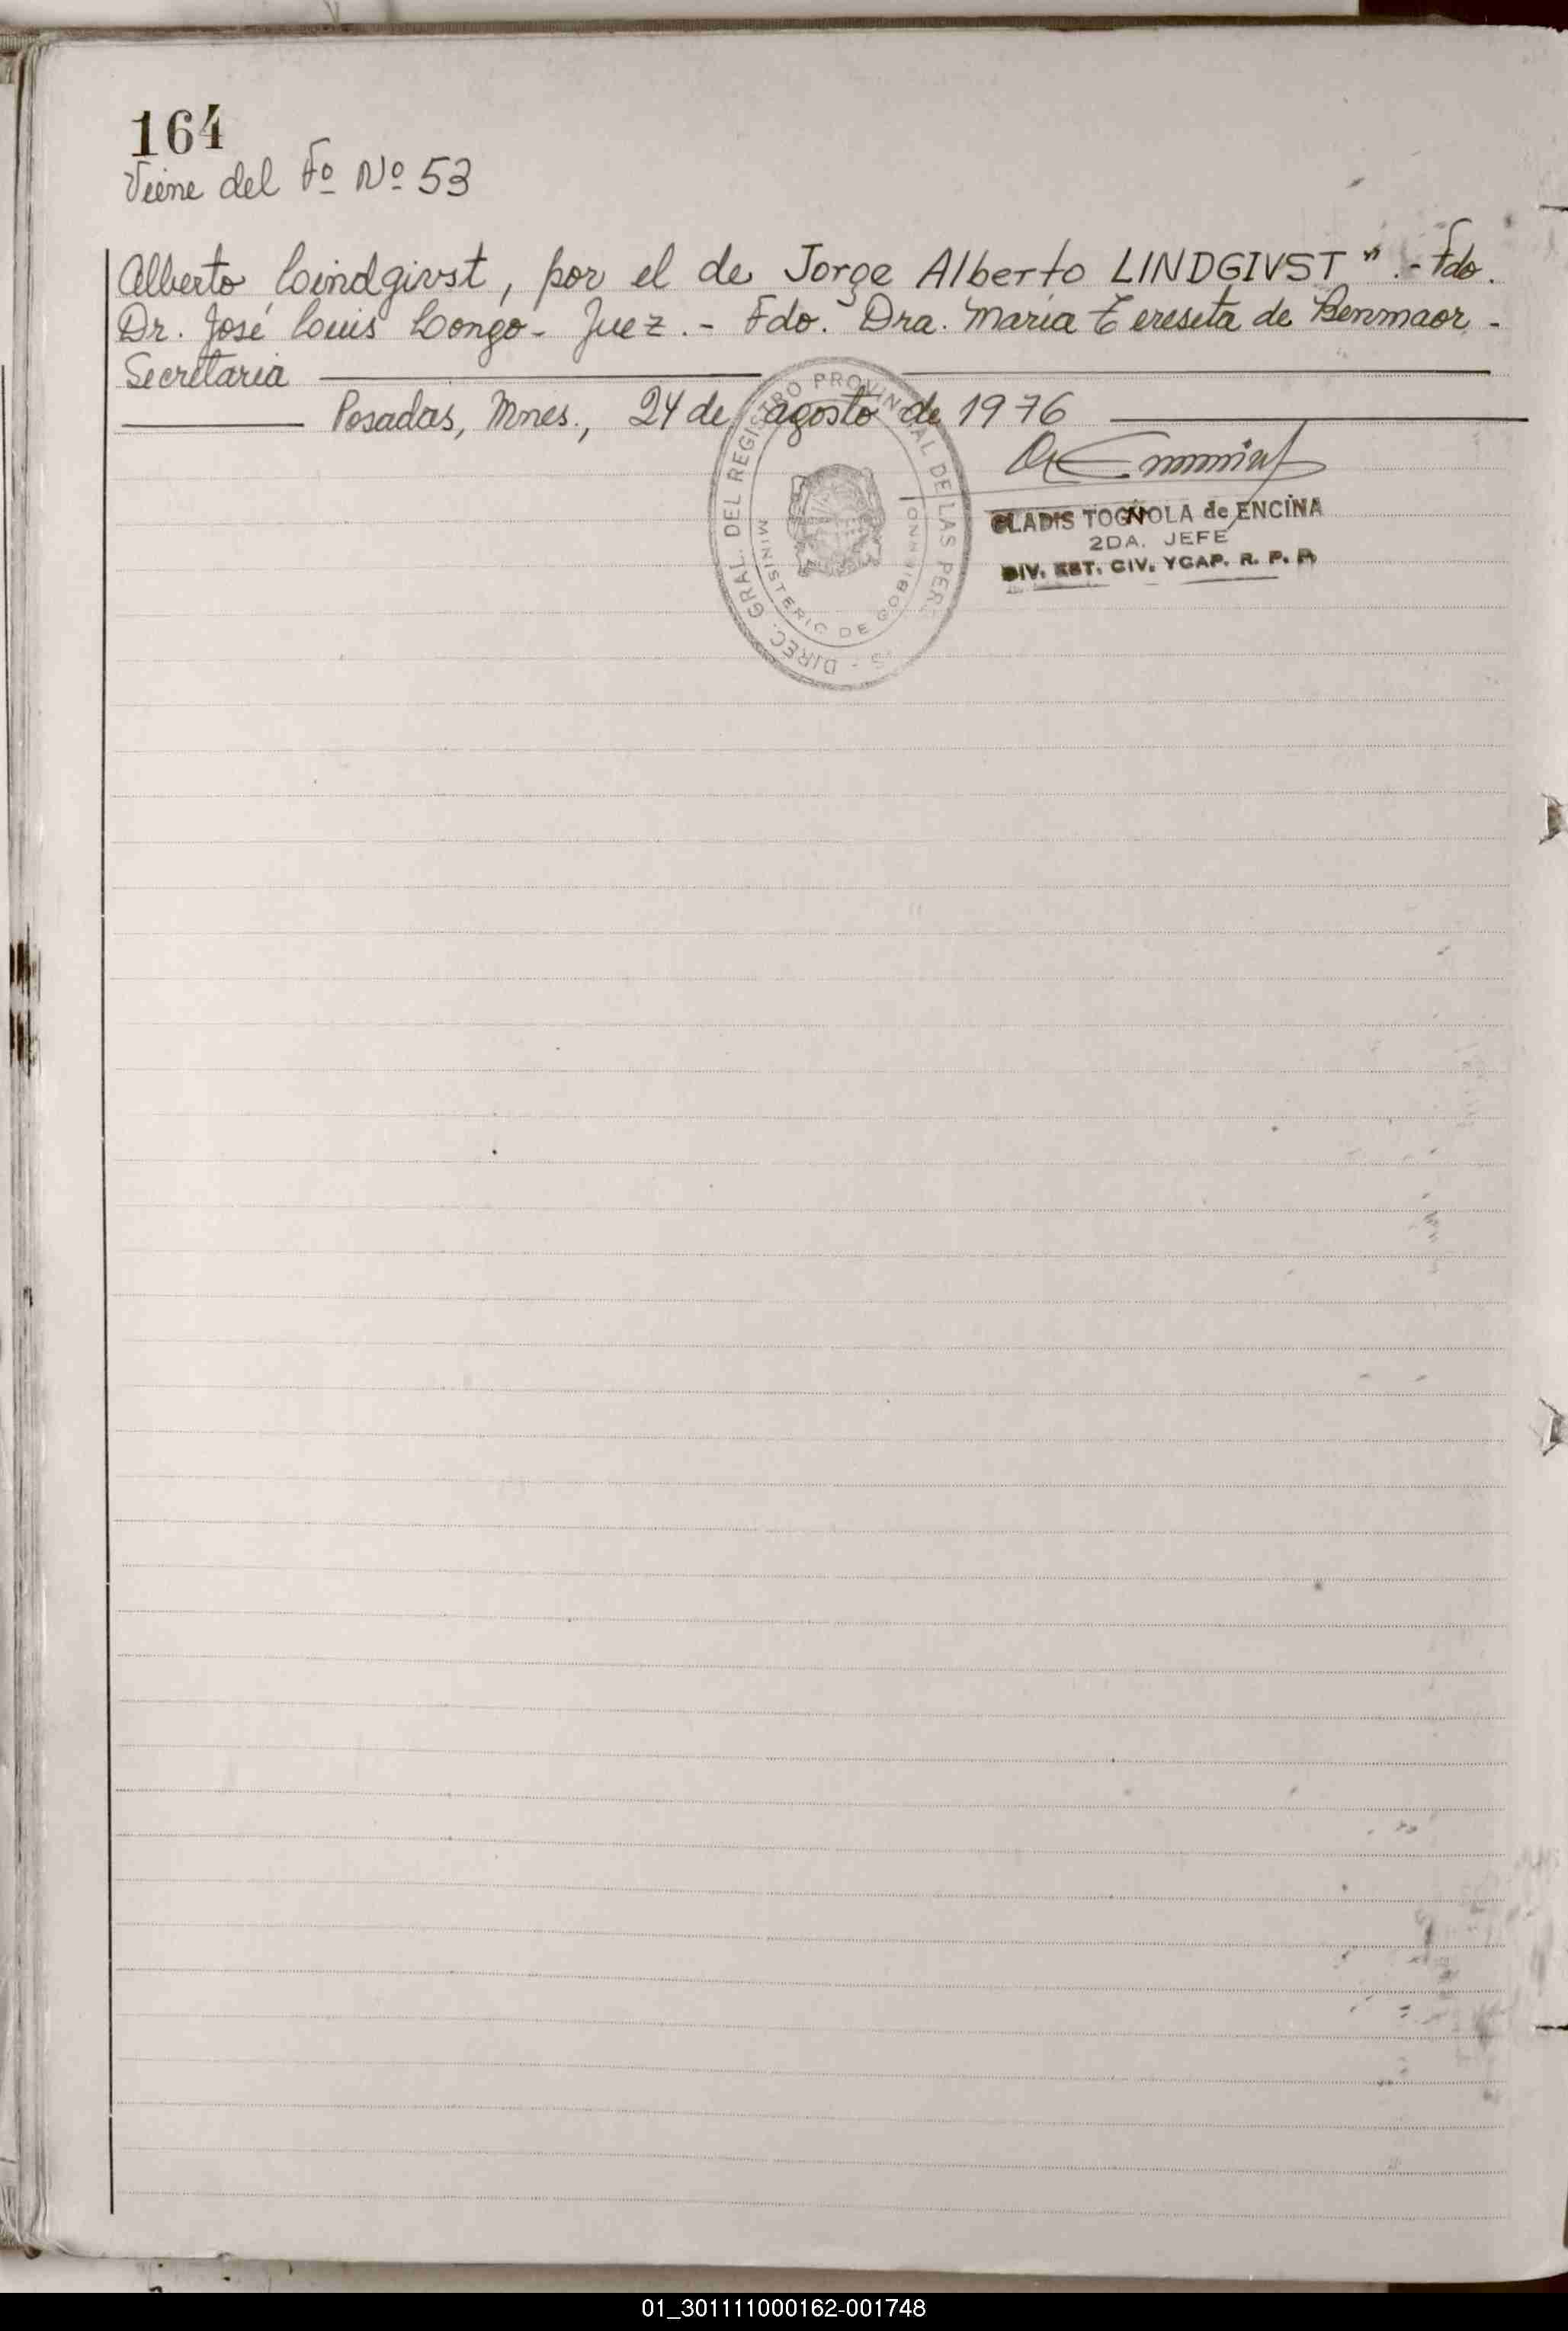 164
Viene del Fº Nº 53
Alberto Lindgivst, por el de Jorge Alberto LINDGIVST".- Fdo.
Dr. José Luis Longo - Juez.- Fdo. Dra. María Teresita de Benmaor -
Secretaria
Posadas, Mnes., 24 de agosto de 1976
DIREC. GRAL. DEL REGISTRO PROVINCIAL DE LAS PERS. -
MINISTERIO DE GOBIERNO
GLADIS TOGNOLA de ENCINA
2DA. JEFE
DIV. EST. CIV. YCAP. R. P. P.
01_301111000162-001748